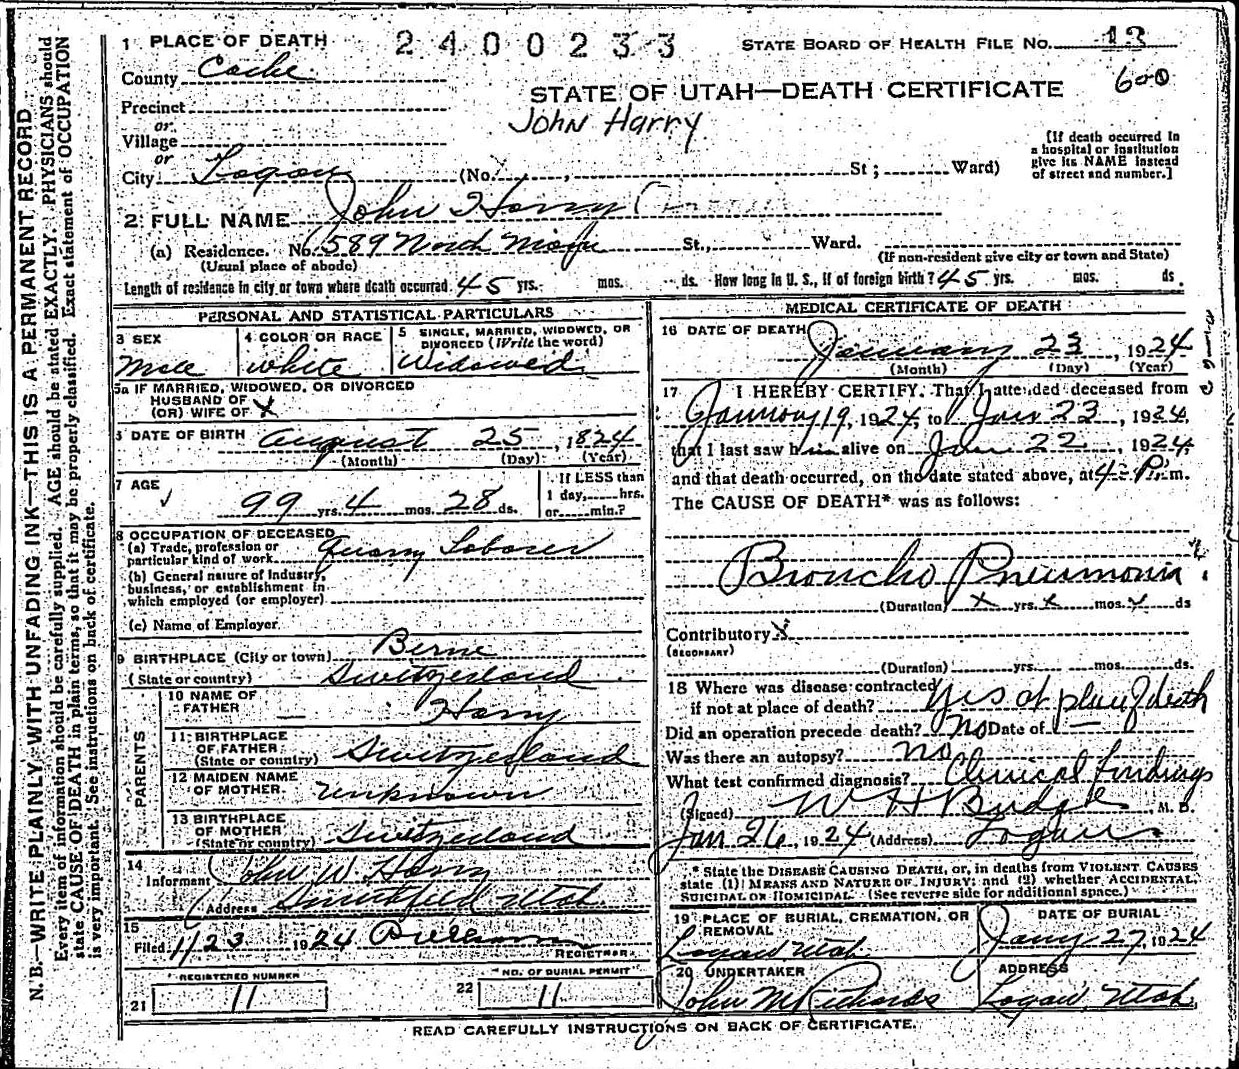 N.B.—WRITE PLAINLY, WITH UNFADING INK—THIS IS A PERMANENT RECORD
Every item of information should be carefully supplied. AGE should be stated EXACTLY. PHYSICIANS should
state CAUSE OF DEATH in plain terms, so that it may be properly classified. Exact statement of OCCUPATION
is very important. See instructions on back of certificate.
1 PLACE OF DEATH 2400233 STATE BOARD OF HEALTH FILE No. 13
County Cache 600
STATE OF UTAH—DEATH CERTIFICATE
Precinct
John Harry
or
Village
or
City Logan (No. , St; Ward)
[If death occurred in
a hospital or institution
give its NAME instead
of street and number.]
2 FULL NAME John Harry
(a) Residence. No. 589 North St., Ward.
(Usual place of abode) (If non-resident give city or town and State)
Length of residence in city or town where death occurred 45 yrs. mos. ds. How long in U. S., if of foreign birth? 45 yrs. mos. ds.
PERSONAL AND STATISTICAL PARTICULARS
3 SEX
Male
4 COLOR OR RACE
White
5 SINGLE, MARRIED, WIDOWED, OR
DIVORCED (Write the word)
Widowed
5a IF MARRIED, WIDOWED, OR DIVORCED
HUSBAND OF
(OR) WIFE OF X
6 DATE OF BIRTH August 25, 1824
(Month) (Day) (Year)
7 AGE
99 yrs. 4 mos. 28 ds.
If LESS than
1 day, hrs.
or min.?
8 OCCUPATION OF DECEASED
(a) Trade, profession or
particular kind of work Quarry Laborer
(b) General nature of Industry,
business, or establishment in
which employed (or employer)
(c) Name of Employer
9 BIRTHPLACE (City or town) Berne
(State or country) Switzerland
PARENTS
10 NAME OF
FATHER — Harry
11 BIRTHPLACE
OF FATHER
(State or country) Switzerland
12 MAIDEN NAME
OF MOTHER unknown
13 BIRTHPLACE
OF MOTHER
(State or country) Switzerland
14
Informant John W. Harry
Address Smithfield Utah
15
Filed 1/23 1924
REGISTRAR
REGISTERED NUMBER
21 11
NO. OF BURIAL PERMIT
22 11
MEDICAL CERTIFICATE OF DEATH
16 DATE OF DEATH
January 23, 1924
(Month) (Day) (Year)
17 I HEREBY CERTIFY, That I attended deceased from
January 19, 1924, to Jan 23, 1924,
that I last saw him alive on Jan 22, 1924,
and that death occurred, on the date stated above, at 4 P. m.
The CAUSE OF DEATH* was as follows:
Broncho Pneumonia
(Duration) x yrs. x mos. x ds
Contributory x
(SECONDARY)
(Duration) yrs. mos. ds.
18 Where was disease contracted
if not at place of death? Yes at place of death
Did an operation precede death? No Date of —
Was there an autopsy? no
What test confirmed diagnosis? Clinical findings
(Signed) W H Budge M. D.
Jan 26, 1924 (Address) Logan
* State the DISEASE CAUSING DEATH, or, in deaths from VIOLENT CAUSES
state (1) MEANS AND NATURE OF INJURY; and (2) whether ACCIDENTAL,
SUICIDAL OR HOMICIDAL. (See reverse side for additional space.)
19 PLACE OF BURIAL, CREMATION, OR
REMOVAL
Logan Utah
DATE OF BURIAL
Jany 27, 1924
20 UNDERTAKER
John M Richards
ADDRESS
Logan, Utah
READ CAREFULLY INSTRUCTIONS ON BACK OF CERTIFICATE.